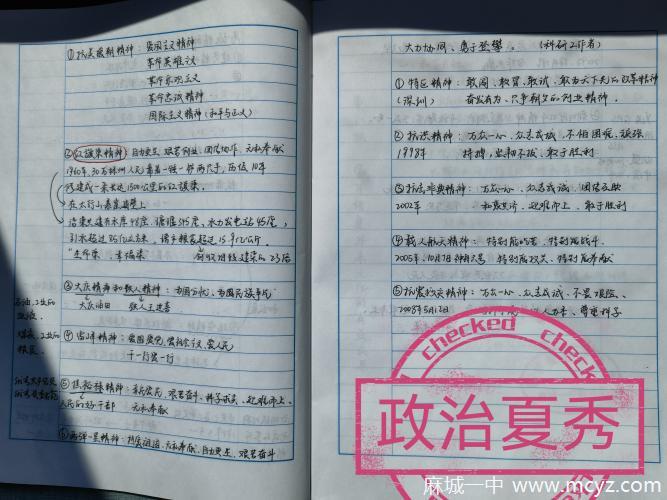 ①抗美援朝精神：爱国主义精神
革命英雄主义
革命乐观主义
革命忠诚精神
国际主义精神（和平与正义）
②红旗渠精神：自力更生、艰苦创业、团结协作、无私奉献
1960年，30万林州人民靠着一锤一钎两只手，历经10年
修建成一条长达1500公里的红旗渠。
在太行山悬崖峭壁上
沿渠共建有水库48座，塘堰345座，水力发电站45座，
引水超过85亿立方米，增产粮食超过15.9亿公斤。
"生命渠、幸福渠"
③大庆精神和铁人精神：为国分忧、为国民族争气
大庆油田 铁人王进喜
④雷锋精神：爱国爱党、爱社会主义、爱人民
干一行爱一行
⑤焦裕禄精神：亲民爱民、艰苦奋斗、科学求实、迎难而上、
人民的好干部 无私奉献
⑥两弹一星精神：热爱祖国、无私奉献、自力更生、艰苦奋斗
大力协同、勇于登攀。（科研工作者）
①特区精神：敢闯、敢冒、敢试、敢为天下先的改革精神
（深圳） 奋发有为、只争朝夕的创业精神。
②抗洪精神：万众一心、众志成城、不怕困难、顽强
1998年 拼搏、坚韧不拔、敢于胜利
③抗击非典精神：万众一心、众志成城、团结互助
2002年 和衷共济、迎难而上、敢于胜利
④载人航天精神：特别能吃苦、特别能战斗、
特别能攻关、特别能奉献
⑤抗震救灾精神：万众一心、众志成城、不畏艰险、
2008年5月12日 以人为本、尊重科学
checked
checked
政治夏秀
麻城一中 www.mcyz.com